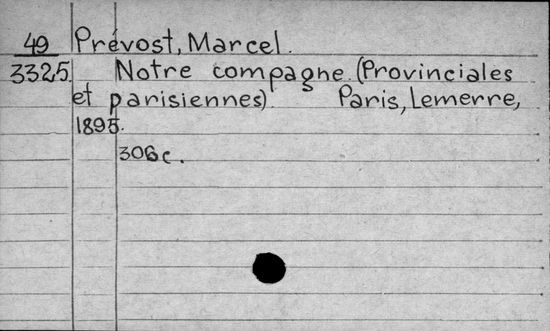 49 Prévost, Marcel.
3325 Notre compagne. (Provinciales
et parisiennes). Paris, Lemerre,
1895.
306 c.